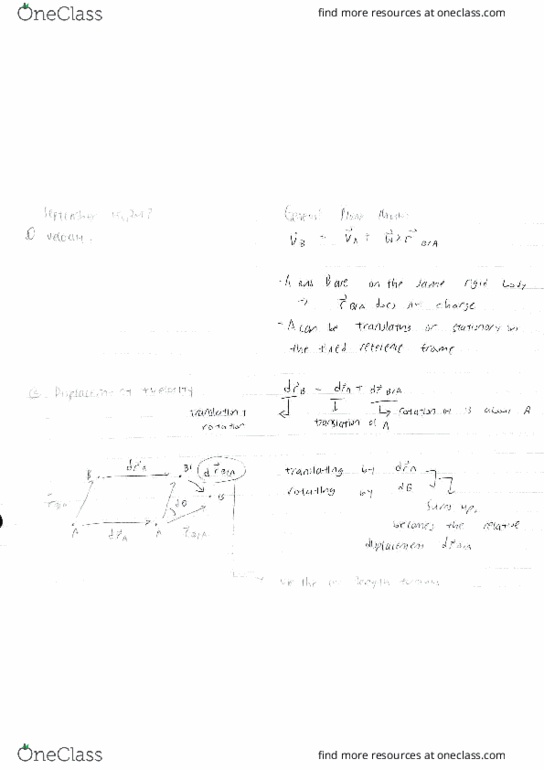 OneClass
find more resources at oneclass.com
September 2017
General Plane
velocity
V⃗_B = V⃗_A + ω⃗ × r⃗_B/A
- A and B are on the same rigid body
→ r⃗_B/A does not change
- A can be translating or stationary
the fixed reference frame
Displacement velocity
dr⃗_B = dr⃗_A + dr⃗_B/A
translation +
rotation
translation of A
rotation of B about A
dr⃗_A
B
B'
dr⃗_B/A
dθ
B
r⃗_B/A
A
dr⃗_A
A
r⃗_B/A
translating by dr⃗_A
rotating by dθ
sums up,
becomes the relative
displacement dr⃗_B/A
the length
OneClass
find more resources at oneclass.com